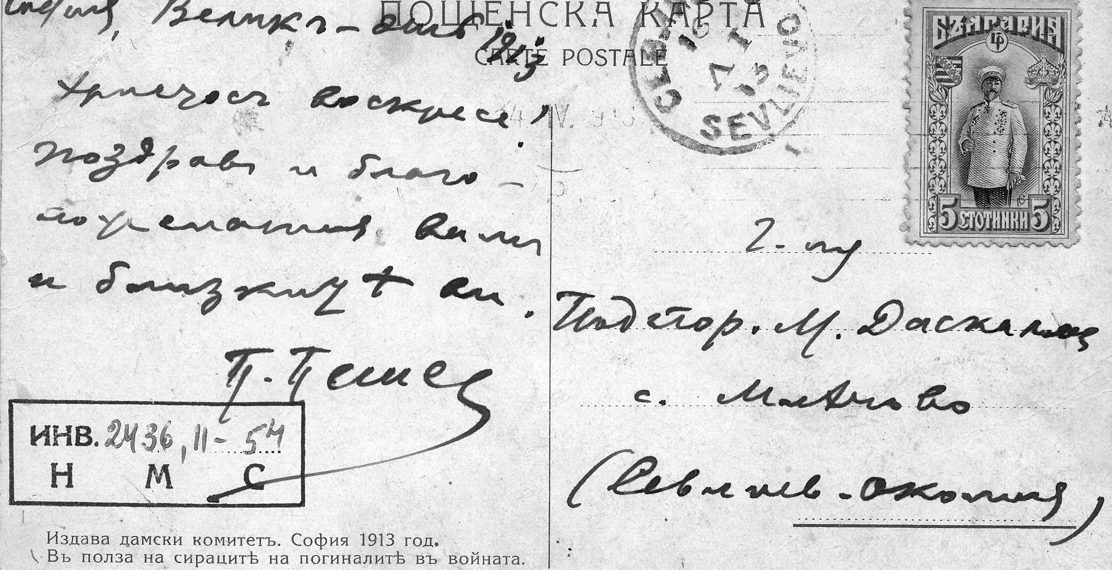 София, Великъ-день 1913
ПОЩЕНСКА КАРТА
CARTE POSTALE
Христосъ воскресе!
поздрави и благо-
пожелания вами
и близкитѣ ви.
П. Пешев
ИНВ. 2436, II-54
Н М С
Издава дамски комитетъ. София 1913 год.
Въ полза на сирацитѣ на погиналитѣ въ войната.
SEVLIEVO
13
БЪЛГАРИЯ
5 СТОТИНКИ 5
Подпор. М. Даскалов
с. Млѣчово
(Севлиев. околия)